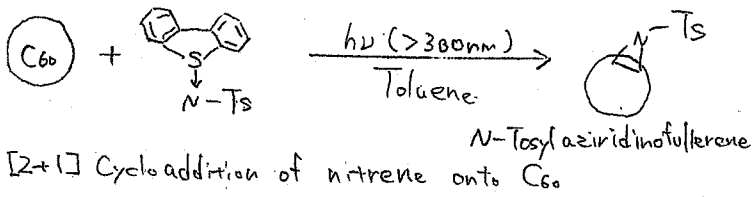 C60 + S N-Ts hν (>300nm) Toluene. N-Ts
N-Tosyl aziridinofullerene
[2+1] Cycloaddition of nitrene onto C60